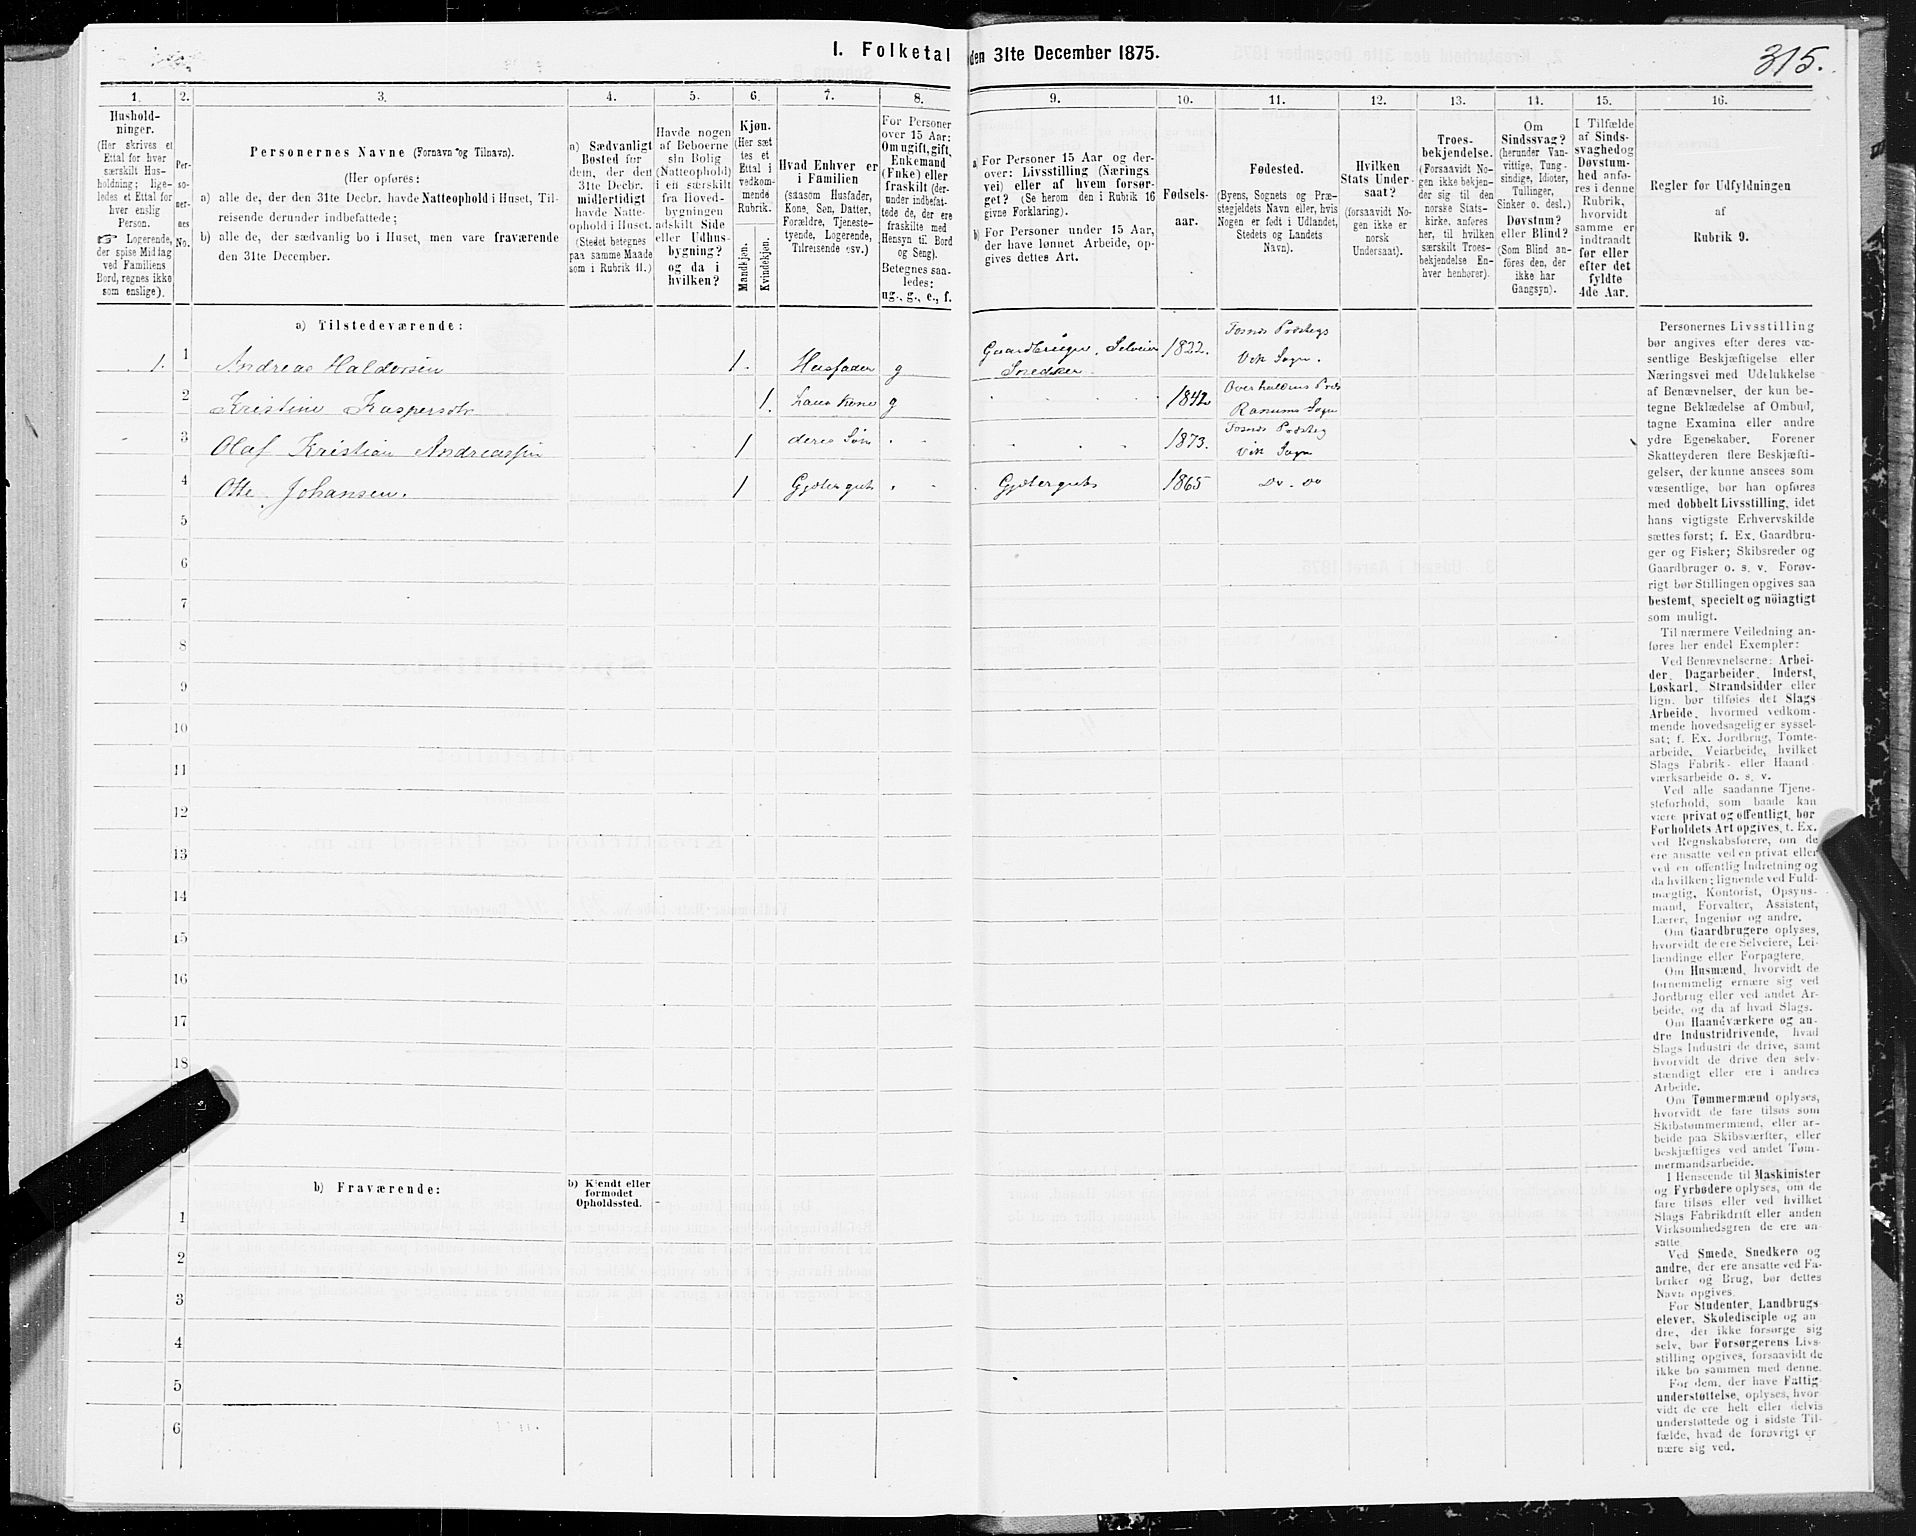 I. Folketal den 31te December 1875.
315.
1.
2.
3.
4.
5.
6.
7.
8.
9.
10.
11.
12.
13.
14.
15.
16.
Hushold-
ninger.
(Her skrives et
Ettal for hver
særskilt Hus-
holdning; lige-
ledes et Ettal for
hver enslig
Person.
☞ Logerende,
der spise Middag
ved Familiens
Bord, regnes ikke
som enslige).
Per-
so-
ner-
nes
No.
Personernes Navne (Fornavn og Tilnavn).
(Her opføres:
a) alle de, der den 31te Decbr. havde Natteophold i Huset, Til-
reisende derunder indbefattede;
b) alle de, der sædvanlig bo i Huset, men vare fraværende
den 31te December.
a) Sædvanligt
Bosted for
dem, der den
31te Decbr.
midlertidigt
havde Natte-
ophold i Huset.
(Stedet betegnes
paa samme Maade
som i Rubrik 11.)
Havde nogen
af Beboerne
sin Bolig
(Natteophold)
i en særskilt
fra Hoved-
bygningen
adskilt Side
eller Udhus-
bygning?
og da i
hvilken?
Kjøn.
(Her sæt
tes et
Ettal i
vedkom-
mende
Rubrik.
Mandkjøn.
Kvindekjøn.
Hvad Enhver er
i Familien
(saasom Husfader,
Kone, Søn, Datter,
Forældre, Tjeneste-
tyende, Logerende,
Tilreisende osv.)
For Personer
over 15 Aar:
Om ugift, gift,
Enkemand
(Enke) eller
fraskilt (der-
under indbefat-
tede de, der ere
fraskilte med
Hensyn til Bord
og Seng).
Betegnes saa-
ledes:
ug., g., e., f.
a) For Personer 15 Aar og der-
over: Livsstilling (Nærings
vei) eller af hvem forsør-
get? (Se herom den i Rubrik 16
givne Forklaring).
b) For Personer under 15 Aar,
der have lønnet Arbeide, op-
gives dettes Art.
Fødsels-
aar.
Fødested.
(Byens, Sognets og Præ-
stegjeldets Navn eller, hvis
Nogen er født i Udlandet,
Stedets og Landets
Navn).
Hvilken
Stats Under-
saat?
(forsaavidt No-
gen ikke er
norsk
Undersaat).
Troes-
bekjendelse.
(Forsaavidt No-
gen ikke bekjen-
der sig til den
norske Stats-
kirke, anføres
her, til hvilken
særskilt Troes-
bekjendelse En-
hver henhører).
Om
Sindssvag?
(herunder Van-
vittige, Tung-
sindige, Idioter,
Tullinger,
Sinker o. desl.)
Døvstum?
eller Blind?
(Som Blind an-
føres den, der
ikke har
Gangsyn).
I Tilfælde
af Sinds-
svaghed og
Døvstum-
hed anfø-
res i denne
Rubrik,
hvorvidt
samme er
indtraadt
før eller
efter det
fyldte
4de Aar.
Regler for Udfyldningen
af
Rubrik 9.
a) Tilstedeværende:
1. 1 Andreas Haldersen 1. Husfader g Gaardbruger, Selveier Snedker 1822. Fosnes Præstegj Vik Sogn.
2 Kristine Kaspersdtr 1. hans Kone g 1842 Overhaldens Præs Ranums Sogn
3 Olaf Kristian Andreassen 1 deres Søn 1873. Fosnes Præsteg Vik Sogn
4 Otte Johansen. 1 Gjætergut Gjætergut 1865 Do. Do
5
6
7
8
9
10
11
12
13
14
15
16
17
18
b) Fraværende:
b) Kjendt eller
formodet
Opholdssted.
1
2
3
4
5
6
Personernes Livsstilling
bør angives efter deres væ-
sentlige Beskjæftigelse eller
Næringsvei med Udelukkelse
af Benævnelser, der kun be-
tegne Beklædelse af Ombud,
tagne Examina eller andre
ydre Egenskaber. Forener
Skatteyderen flere Beskjæfti-
gelser, der kunne ansees som
væsentlige, bør han opføres
med dobbelt Livsstilling, idet
hans vigtigste Erhvervskilde
sættes først; f. Ex. Gaardbru-
ger og Fisker; Skibsreder og
Gaardbruger o. s. v. Forøv-
rigt bør Stillingen opgives saa
bestemt, specielt og nöiagtigt
som muligt.
Til nærmere Veiledning an-
føres her endel Exempler:
Ved Benævnelserne: Arbei-
der, Dagarbeider, Inderst,
Løskarl, Strandsidder eller
lign. bør tilføies det Slags
Arbeide, hvormed vedkom-
mende hovedsagelig er syssel-
sat; f. Ex. Jordbrug, Tomte-
arbeide, Veiarbeide, hvilket
Slags Fabrik- eller Haand-
værksarbeide o. s. v.
Ved alle saadanne Tjene-
steforhold, som baade kan
være privat og offentligt, bør
Forholdets Art opgives, t. Ex.
ved Regnskabsførere, om de
ere ansatte ved en privat eller
ved en offentlig Indretning og
da hvilken; lignende ved Fuld-
mægtig, Kontorist, Opsyns-
mand, Forvalter, Assistent,
Lærer, Ingeniør og andre.
Om Gaardbrugere oplyses,
hvorvidt de ere Selveiere, Lei-
lændinge eller Forpagtere.
Om Husmænd, hvorvidt de
fornemmelig ernære sig ved
Jordbrug eller ved andet Ar-
beide, og da af hvad Slags.
Om Haandværkere og an-
dre Industridrivende, hvad
Slags Industri de drive, samt
hvorvidt de drive den selv-
stændigt eller ere i andres
Arbeide.
Om Tømmermænd oplyses,
hvorvidt de fare tilsøs som
Skibstømmermænd, eller ar-
beide paa Skibsværfter, eller
beskjæftiges ved andet Tøm-
mermandsarbeide.
I Henseende til Maskinister
og Fyrbødere oplyses, om de
fare tilsøs eller ved hvilket
Slags Fabrikdrift eller anden
Virksomhedsgren de ere an-
satte.
Ved Smede, Snedkere og
andre, der ere ansatte ved Fa-
briker og Brug, bør dettes
Navn opgives.
For Studenter, Landbrugs
elever, Skoledisciple og an
dre, der ikke forsørge sig
selv, bør Forsørgerens Livs-
stilling opgives, forsaavidt de
ikke bo sammen med denne.
For dem, der have Fattig-
understøttelse, oplyses, hvor-
vidt de ere helt eller delvis
understøttede og i sidste Til-
fælde, hvad de forøvrigt er
nære sig ved.